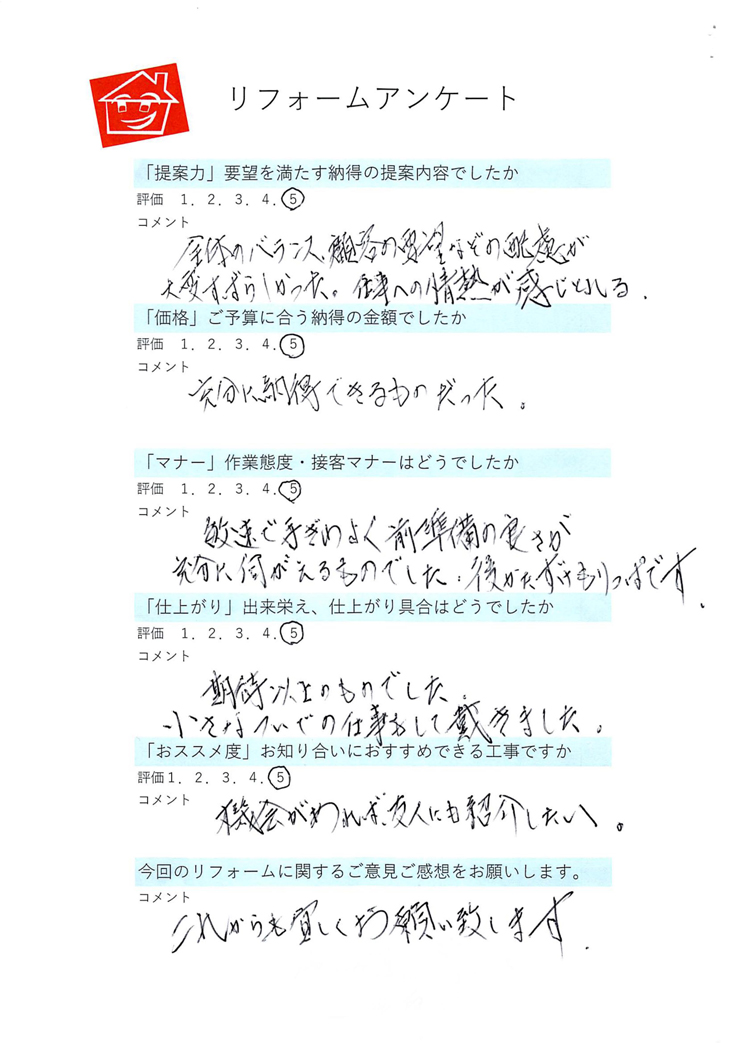 リフォームアンケート
「提案力」要望を満たす納得の提案内容でしたか
評価 1．2．3．4．5
コメント
全体のバランス、顧客の要望などの配慮が
大変すばらしかった。仕事への情熱が感じとれる．
「価格」ご予算に合う納得の金額でしたか
評価 1．2．3．4．5
コメント
充分に納得できるものだった。
「マナー」作業態度・接客マナーはどうでしたか
評価 1．2．3．4．5
コメント
敏速で手ぎわよく前準備の良さが
充分に伺がえるものでした．後かたずけもりっぱです．
「仕上がり」出来栄え、仕上がり具合はどうでしたか
評価 1．2．3．4．5
コメント
期待以上のものでした．
小さなついでの仕事もして戴きました。
「おススメ度」お知り合いにおすすめできる工事ですか
評価1．2．3．4．5
コメント
機会があれば、友人にも紹介したい。
今回のリフォームに関するご意見ご感想をお願いします。
コメント
これからも宜しくお願い致します．